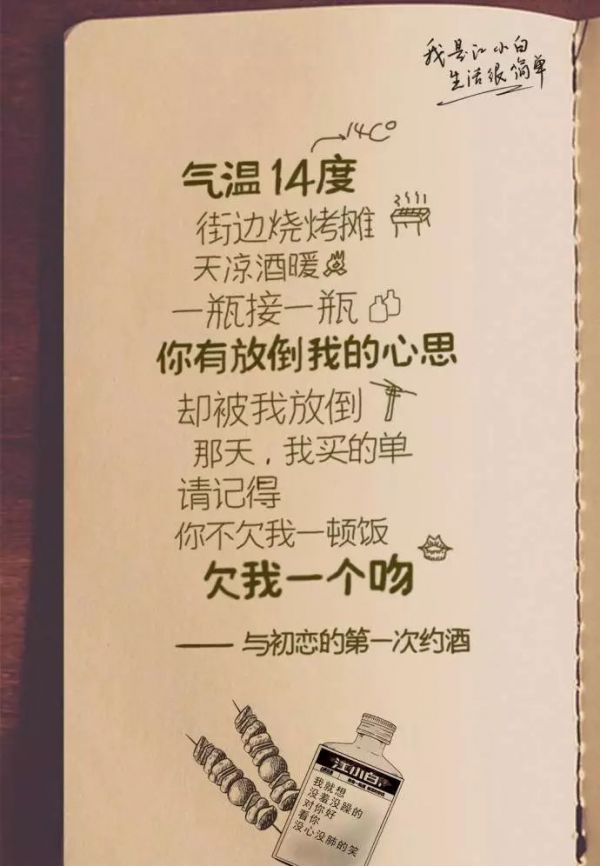 我是江小白
生活很简单
14C°
气温14度
街边烧烤摊
天凉酒暖
一瓶接一瓶
你有放倒我的心思
却被我放倒
那天，我买的单
请记得
你不欠我一顿饭
欠我一个吻
——与初恋的第一次约酒
江小白
我就想
没羞没臊的
对你好
看你
没心没肺的笑